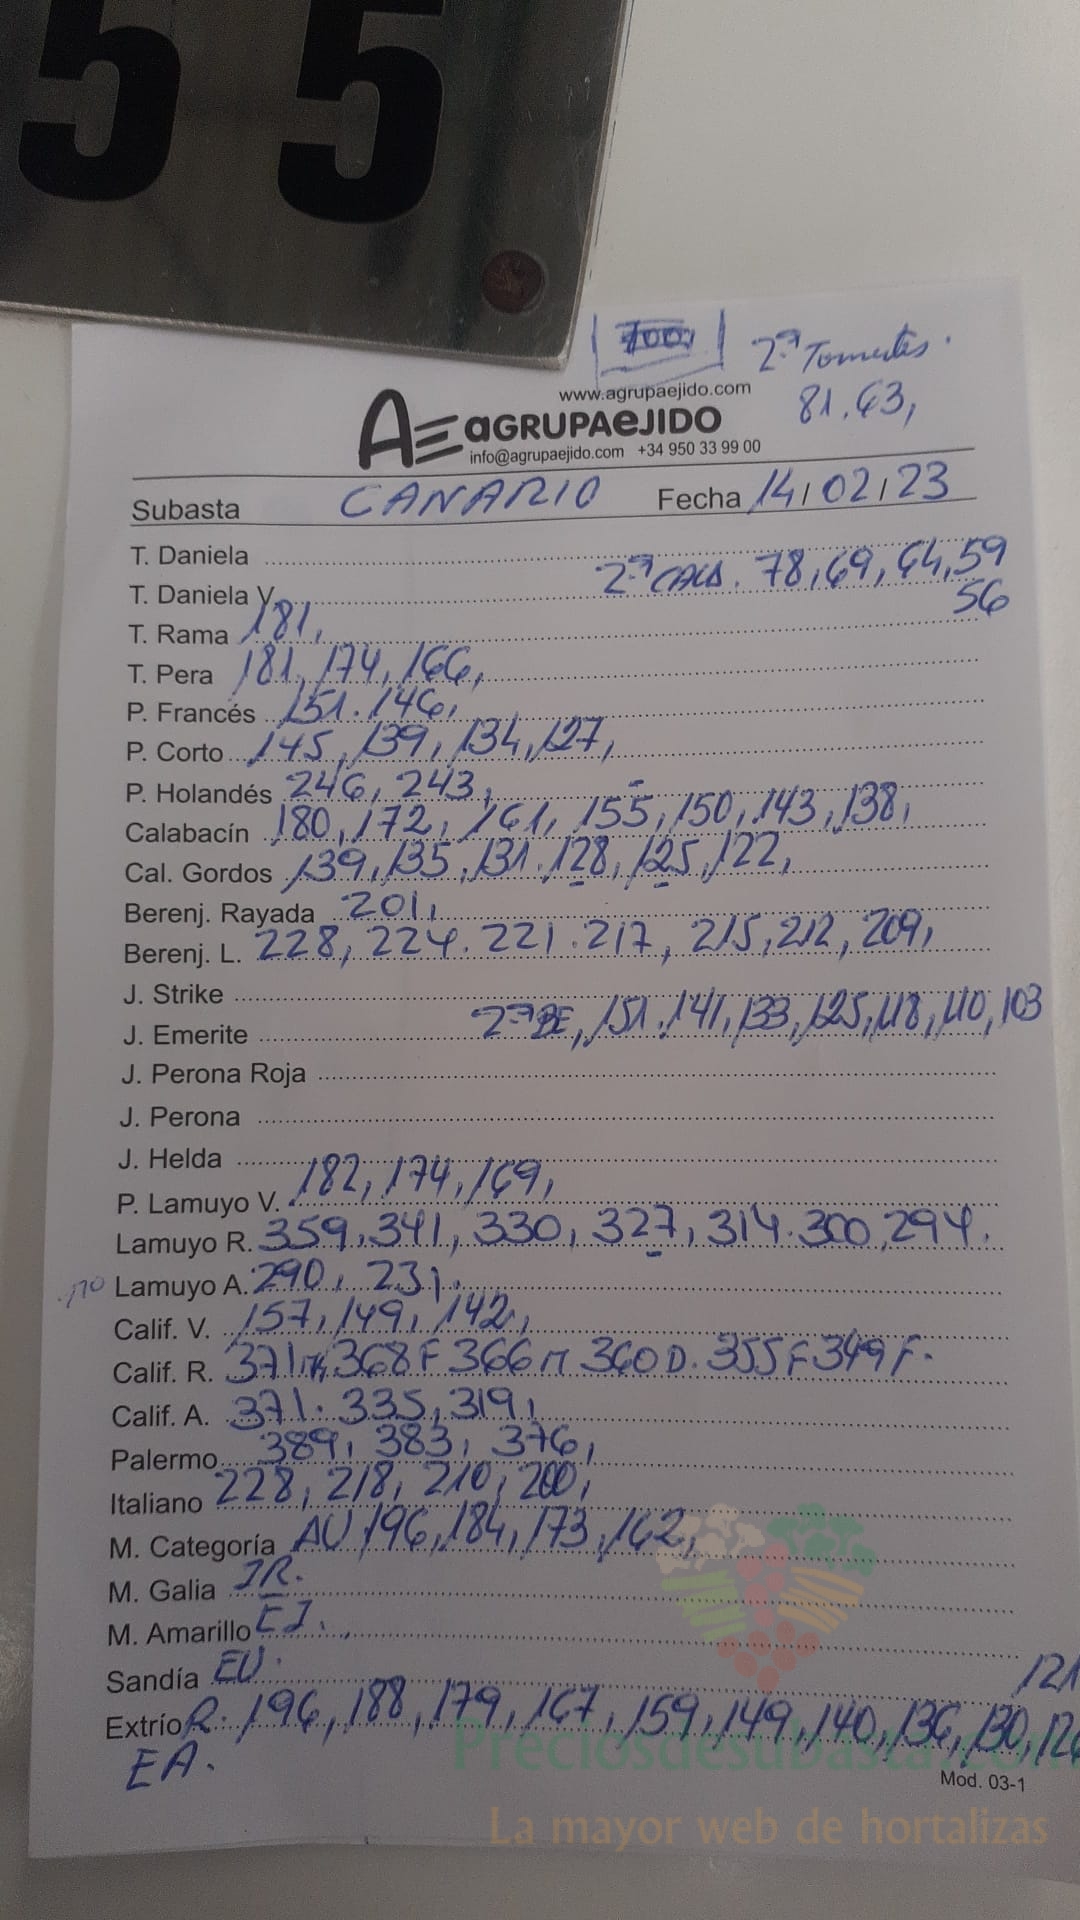 55
700,
2ª Tomates.
www.agrupaejido.com
81.63,
AE aGRUPAeJIDO
info@agrupaejido.com +34 950 33 99 00
Subasta CANARIO Fecha 14/02/23
T. Daniela
2ª CALA. 78,69,64,59
T. Daniela V
56
T. Rama 181,
T. Pera 181, 174, 166,
P. Francés 151. 146,
P. Corto 145, 139, 134, 127,
P. Holandés 246, 243,
Calabacín 180, 172, 161, 155, 150, 143, 138,
Cal. Gordos 139, 135, 131. 128, 125, 122,
Berenj. Rayada 201,
Berenj. L. 228, 224. 221. 217, 215, 212, 209,
J. Strike
2ª BE, 151. 141, 133, 125, 118, 110, 103
J. Emerite
J. Perona Roja
J. Perona
J. Helda
P. Lamuyo V. 182, 174, 169,
Lamuyo R. 359, 341, 330, 327, 314. 300, 294.
Lamuyo A. 290, 231.
Calif. V. 157, 149, 142,
Calif. R. 371 368F 366M 360D. 355F 349F.
Calif. A. 371. 335, 319,
Palermo 389, 383, 376,
Italiano 228, 218, 210, 200,
M. Categoría AU 196, 184, 173, 162,
M. Galia IR.
M. Amarillo EJ.
Sandía EU.
121
Extrío R. 196, 188, 179, 167, 159, 149, 140, 136, 130, 126
EA.
Preciosdesubasta.com
Mod. 03-1
La mayor web de hortalizas